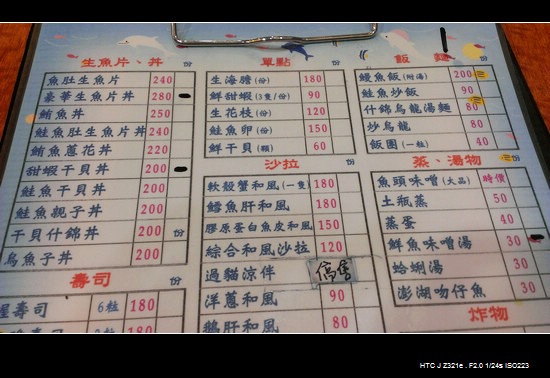 生魚片、丼 份
魚肚生魚片 240
豪華生魚片丼 280
鮪魚丼 250
鮭魚肚生魚片丼 240
鮪魚蔥花丼 220
甜蝦干貝丼 200
鮭魚干貝丼 200
鮭魚親子丼 200
干貝什錦丼 200 份
烏魚子丼 200
壽司 份
握壽司 6粒 180
180
單點 份
生海膽(份) 180
鮮甜蝦(3隻/份) 90
生花枝(份) 120
鮭魚卵(份) 150
鮮干貝(顆) 60
沙拉 份
軟殼蟹和風(一隻 180
鱈魚肝和風 180
膠原蛋白魚皮和風 150
綜合和風沙拉 120
過貓涼伴 停售
洋蔥和風 90
鵝肝和風 80
飯 麵
鰻魚飯(附湯) 200
鮭魚炒飯 90
什錦烏龍湯麵 80
炒烏龍 80
飯團(一粒) 40
蒸、湯物 份
魚頭味噌(大品) 時價
土瓶蒸 50
蒸蛋 40
鮮魚味噌湯 30
蛤蜊湯 30
澎湖吻仔魚 30
炸物
HTC J Z321e . F2.0 1/24s ISO223